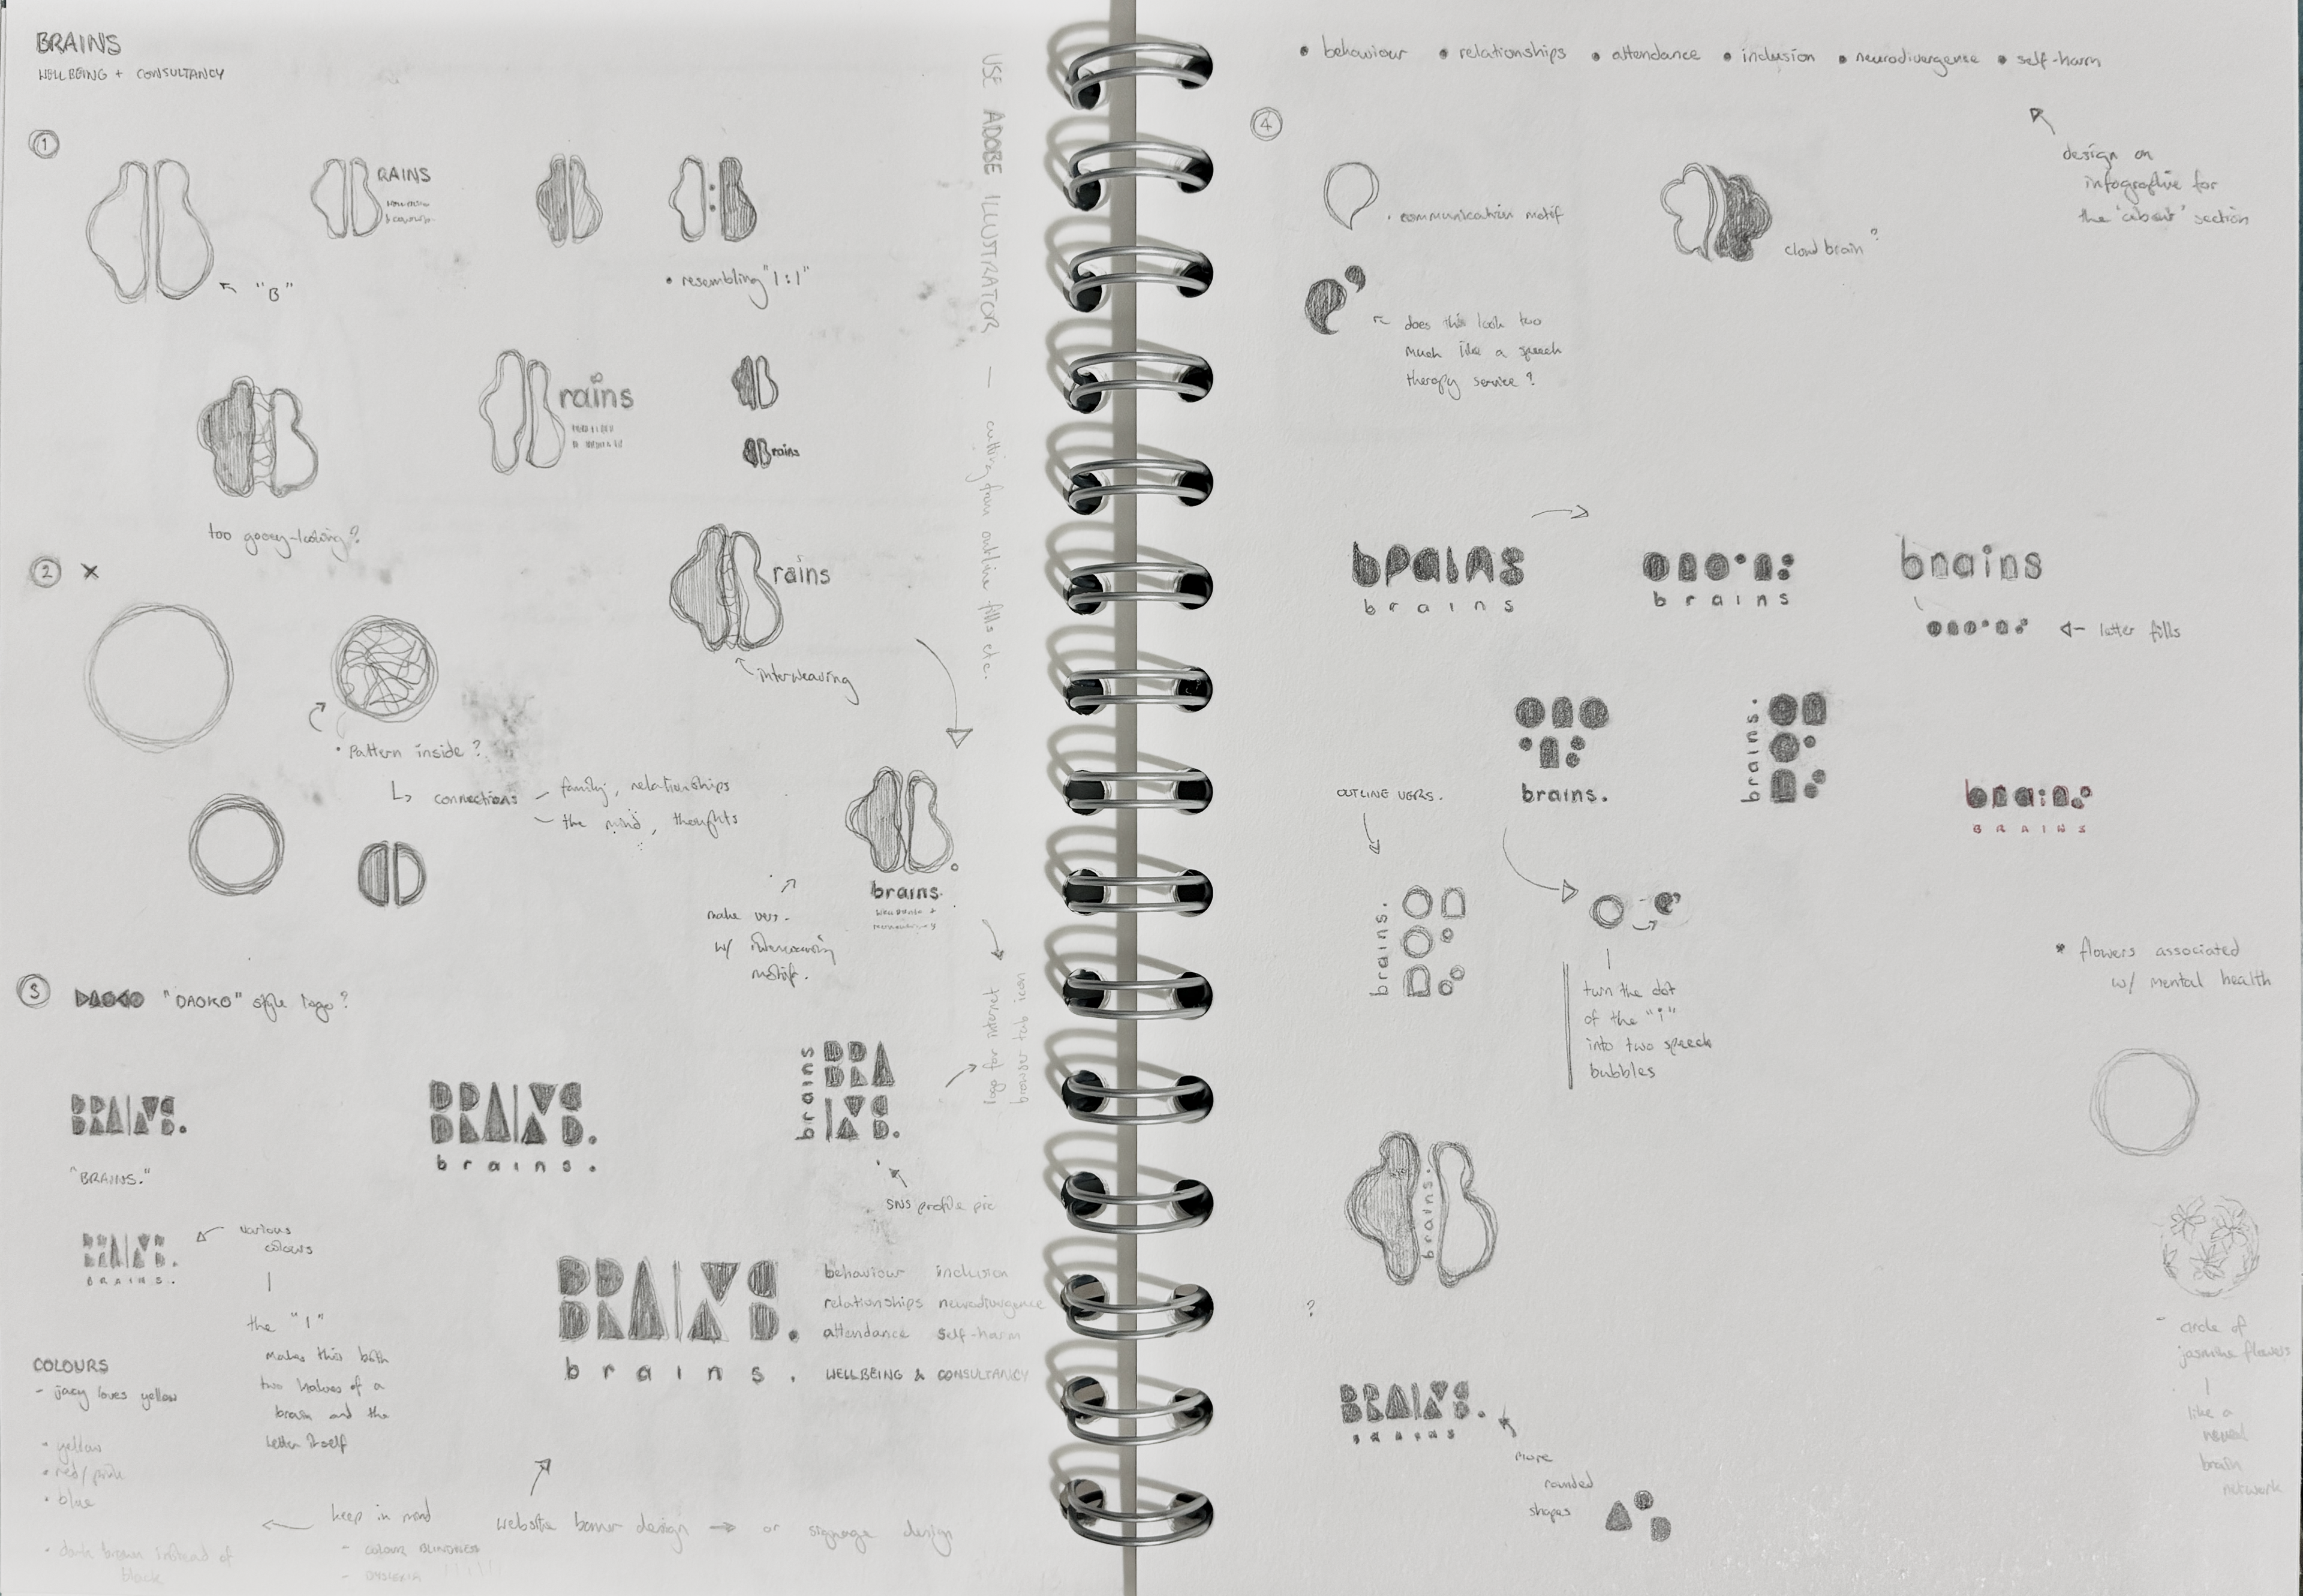 BRAINS
WELLBEING + CONSULTANCY
1
"B"
RAINS
• resembling "1:1"
too gooey-looking?
rains
rains
USE ADOBE ILLUSTRATOR — cutting from outline fills etc.
2 X
rains
interweaving
• Pattern inside?
↳ connections – family, relationships
– the mind, thoughts
make vers.
w/ interweaving
motif.
brains.
WELLBEING +
logo for internet
browser tab icon
3 DAOKO "DAOKO" style logo?
BRAINS.
"BRAINS."
BRAINS.
brains.
brains
BRA
INS.
SNS profile pic
BRAINS.
BRAINS.
various
colours
the "I"
makes this both
two halves of a
brain and the
letter itself
BRAINS.
brains.
behaviour inclusion
relationships neurodivergence
attendance self-harm
WELLBEING & CONSULTANCY
COLOURS
- jacy loves yellow
• yellow
• red/pink
• blue
• dark brown instead of
black
keep in mind
- COLOUR BLINDNESS
- DYSLEXIA
website banner design → or signage design
• behaviour • relationships • attendance • inclusion • neurodivergence • self-harm
design an
infographic for
the "about" section
4
• communication motif
cloud brain?
does this look too
much like a speech
therapy service?
brains
brains
brains
brains
letter fills
brains.
brains.
brains
BRAINS
OUTLINE VERS.
brains.
turn the dot
of the "i"
into two speech
bubbles
* flowers associated
w/ mental health
brains.
?
- circle of
jasmine flowers
like a
neural
brain
network
BRAINS.
BRAINS
more
rounded
shapes